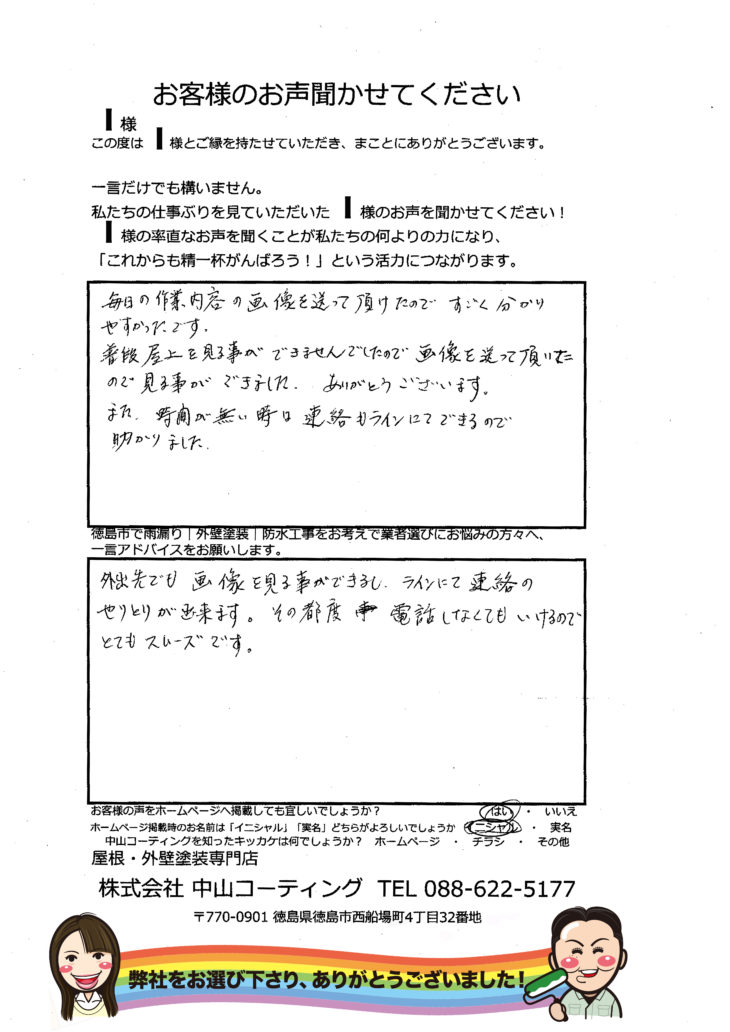 お客様のお声聞かせてください
I 様
この度は I 様とご縁を持たせていただき、まことにありがとうございます。
一言だけでも構いません。
私たちの仕事ぶりを見ていただいた I 様のお声を聞かせてください！
I 様の率直なお声を聞くことが私たちの何よりの力になり、
「これからも精一杯がんばろう！」という活力につながります。
毎日の作業内容の画像を送って頂けたので すごく分かり
やすかったです。
普段屋上を見る事ができませんでしたので画像を送って頂いた
ので見る事ができました。ありがとうございます。
また、時間が無い時は連絡もラインにてできるので
助かりました。
徳島市で雨漏り｜外壁塗装｜防水工事をお考えで業者選びにお悩みの方々へ、
一言アドバイスをお願いします。
外出先でも画像を見る事ができるし、ラインにて連絡の
やりとりが出来ます。その都度 電話しなくてもいけるので
とてもスムーズです。
お客様の声をホームページへ掲載しても宜しいでしょうか？ はい ・ いいえ
ホームページ掲載時のお名前は「イニシャル」「実名」どちらがよろしいでしょうか イニシャル ・ 実名
中山コーティングを知ったキッカケは何でしょうか？ ホームページ ・ チラシ ・ その他
屋根・外壁塗装専門店
株式会社 中山コーティング TEL 088-622-5177
〒770-0901 徳島県徳島市西船場町4丁目32番地
弊社をお選び下さり、ありがとうございました！